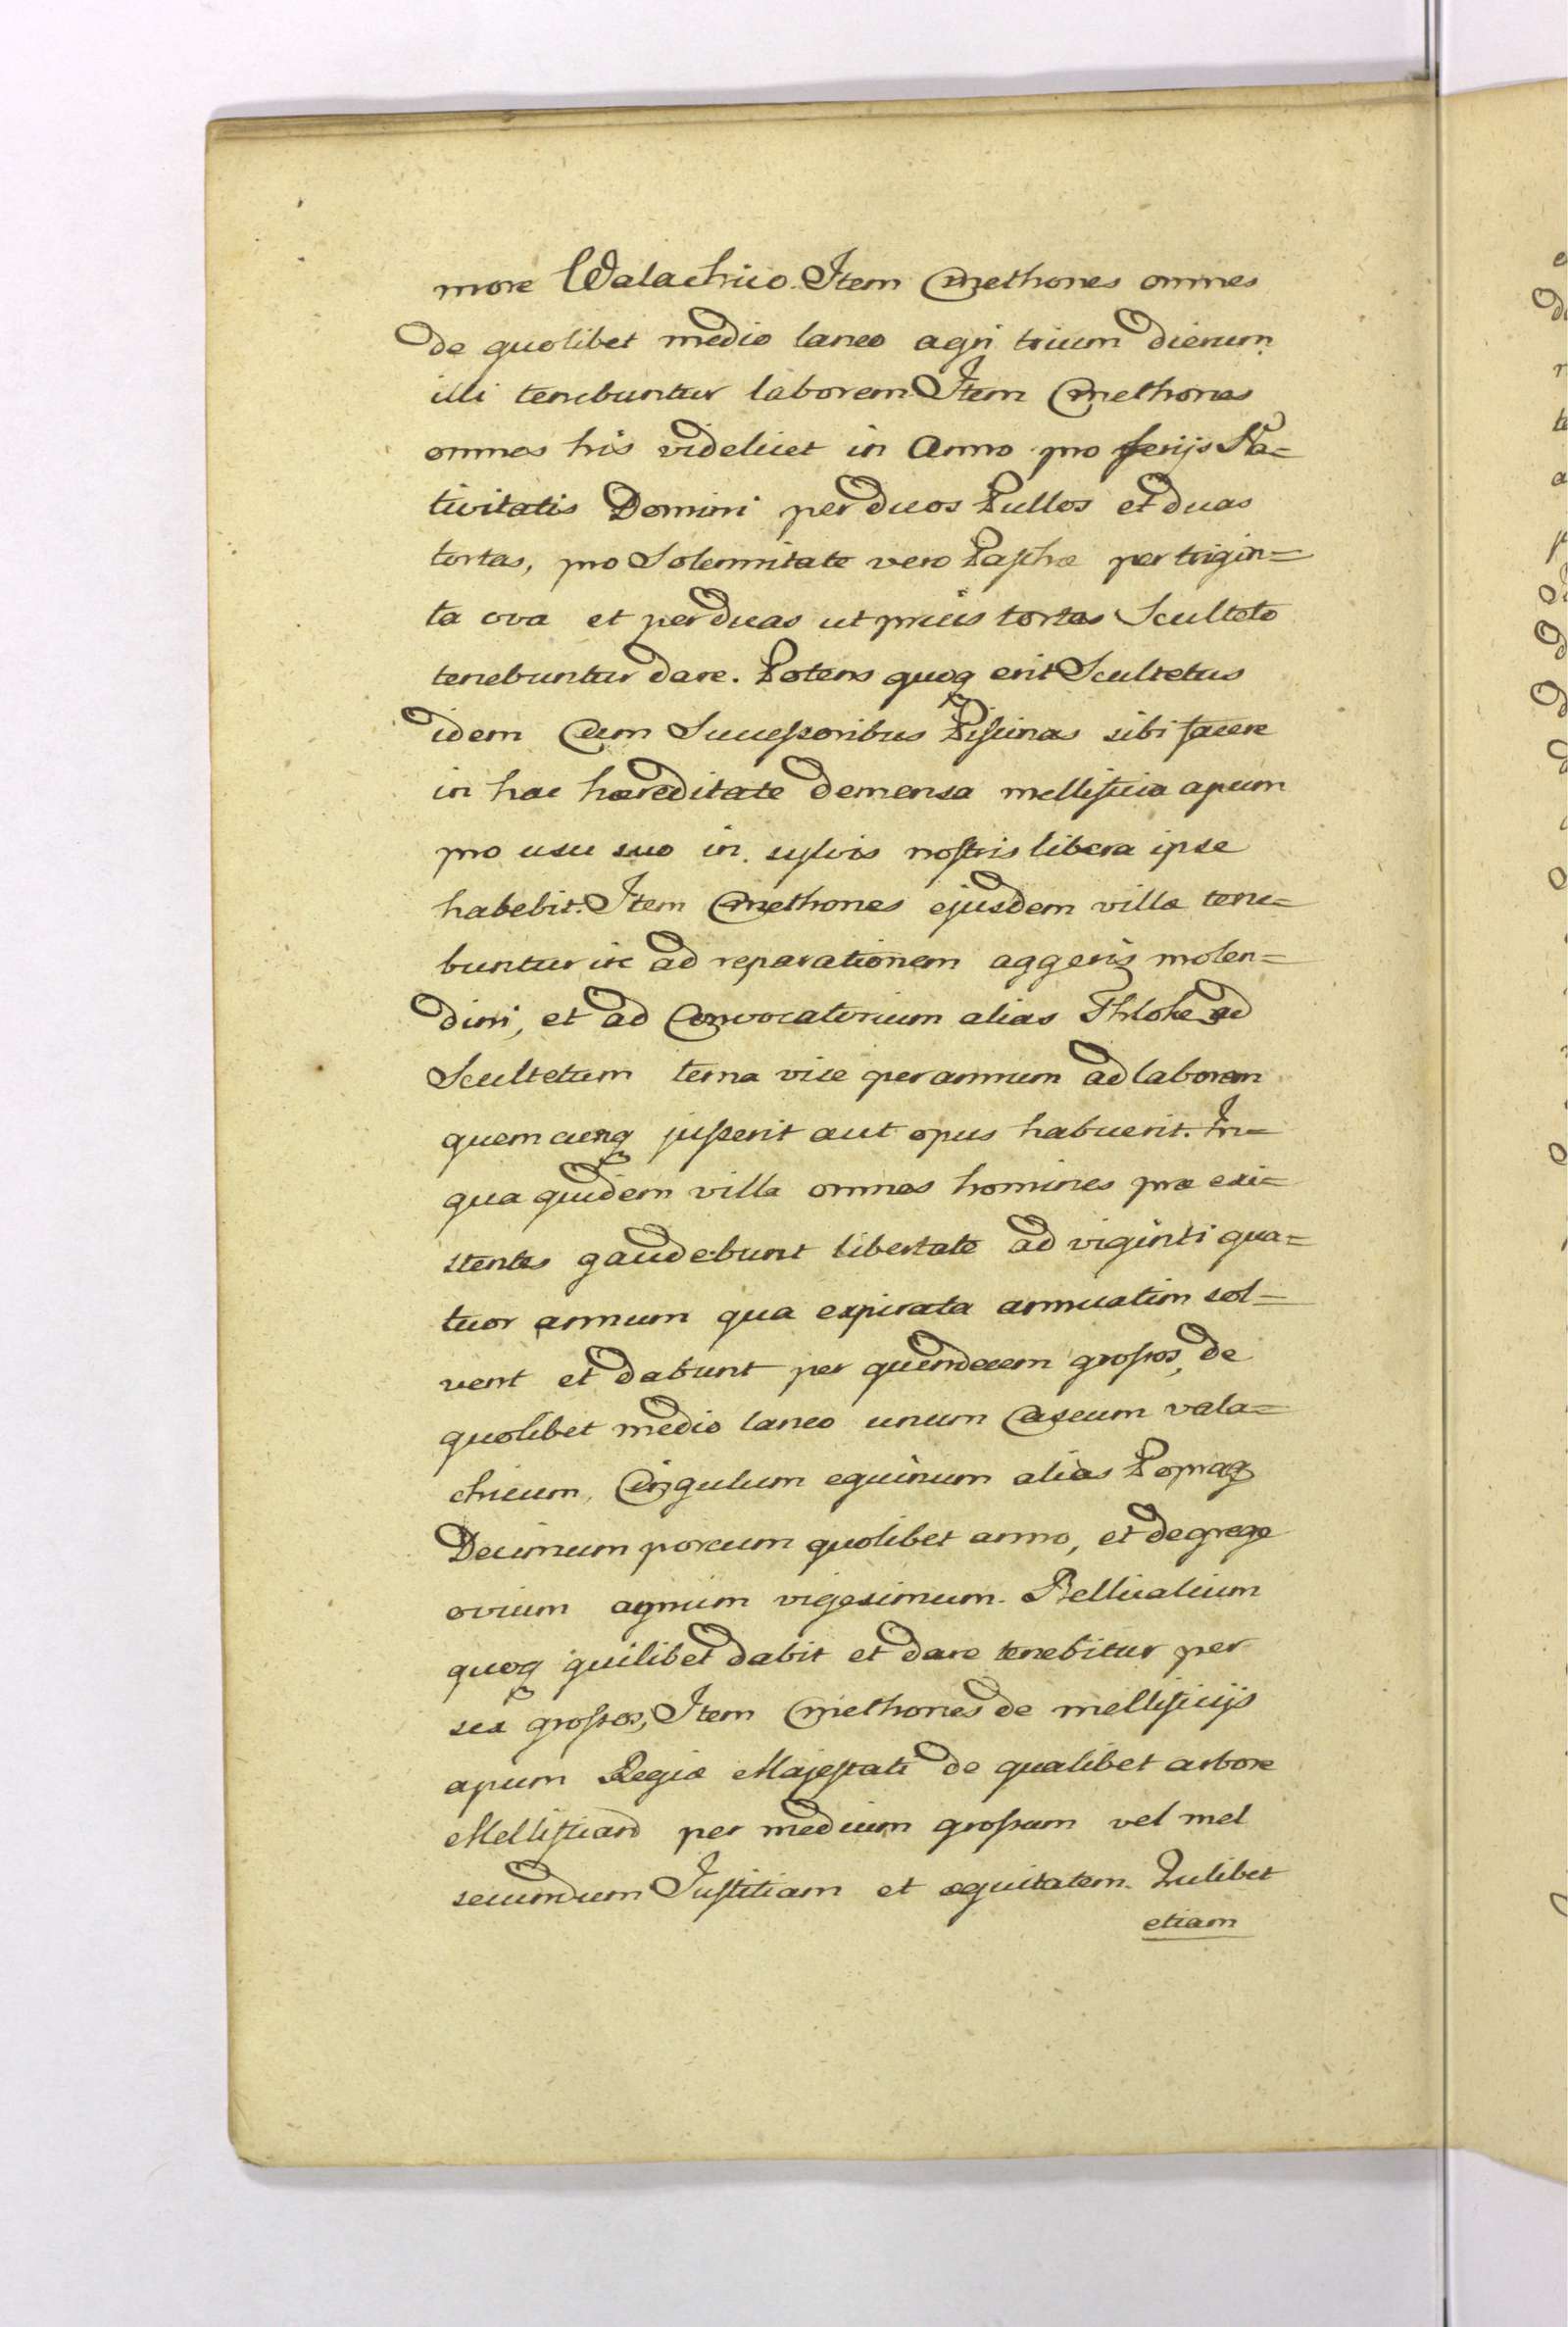 more Walachico. Item Cmethones omnes
de quolibet medio laneo agri trium dierum
illi tenebuntur laborem Item Cmethones
omnes his videlicet in Anno pro ferijs Na=
tivitatis Domini per duos Pullos et duas
tortas, pro Solemnitate vero Paschæ per trigin=
ta ova et per duas ut prius tortas Sculteto
tenebuntur dare. Potens quoq erit Scultetus
idem Cum Successoribus Piscinas sibi facere
in hac hæreditate demensa mellificia apum
pro usu suo in sylvis nostris libera ipse
habebit. Item Cmethones ejusdem villæ tene=
buntur ire ad reparationem aggeris molen=
dini, et ad Convocatorium alias Thloke ad
Scultetum terna vice per annum ad laborem
quemcunq jusserit aut opus habuerit. In=
qua quidem villa omnes homines præ exi=
stentes gaudebunt libertate ad viginti qua=
tuor annum qua expirata annuatim sol=
vent et dabunt per quindecem grossos, de
quolibet medio laneo unum Caseum vala=
chicum, Cingulum equinum alias Poprag
Decimum porcum quolibet anno, et de grege
ovium agnum vigesimum. Bellicalium
quoq quilibet dabit et dare tenebitur per
sex grossos, Item Cmethones de mellificijs
apum Regiæ Majestati de qualibet arbore
per medium grossum vel mel
secundum Justitiam et æquitatem. Quilibet
etiam